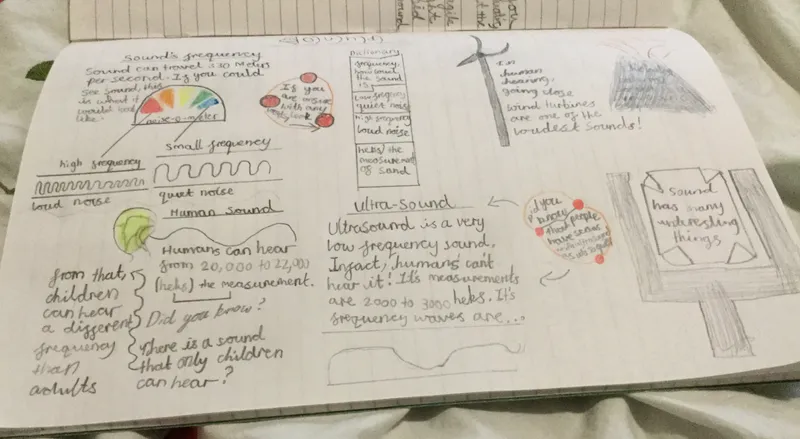 Sound's frequency
Sound can travel 330 meters
per second. If you could
see sound, this
is what it
would look
like.
noise-o-meter
If you
are unsure
with any
look
high frequency
loud noise
small frequency
quiet noise
Dictionary
frequency,
how loud
the sound
is
low frequency
quiet noise
high frequency
loud noise
heks/the
measurement
of sand
In
human
hearing,
going close
wind turbines
are one of the
loudest sounds!
Human Sound
Humans can hear
from 20,000 to 22,000
(heks) the measurement.
from that,
children
can hear
a different
frequency
than
adults
Did you know?
There is a sound
that only children
can hear?
Ultra-Sound
Ultrasound is a very
low frequency sound.
Infact, humans can't
hear it! It's measurements
are 2000 to 3000 heks. It's
frequency waves are...
Did you
know
that people
have
Sound
has many
interesting
things